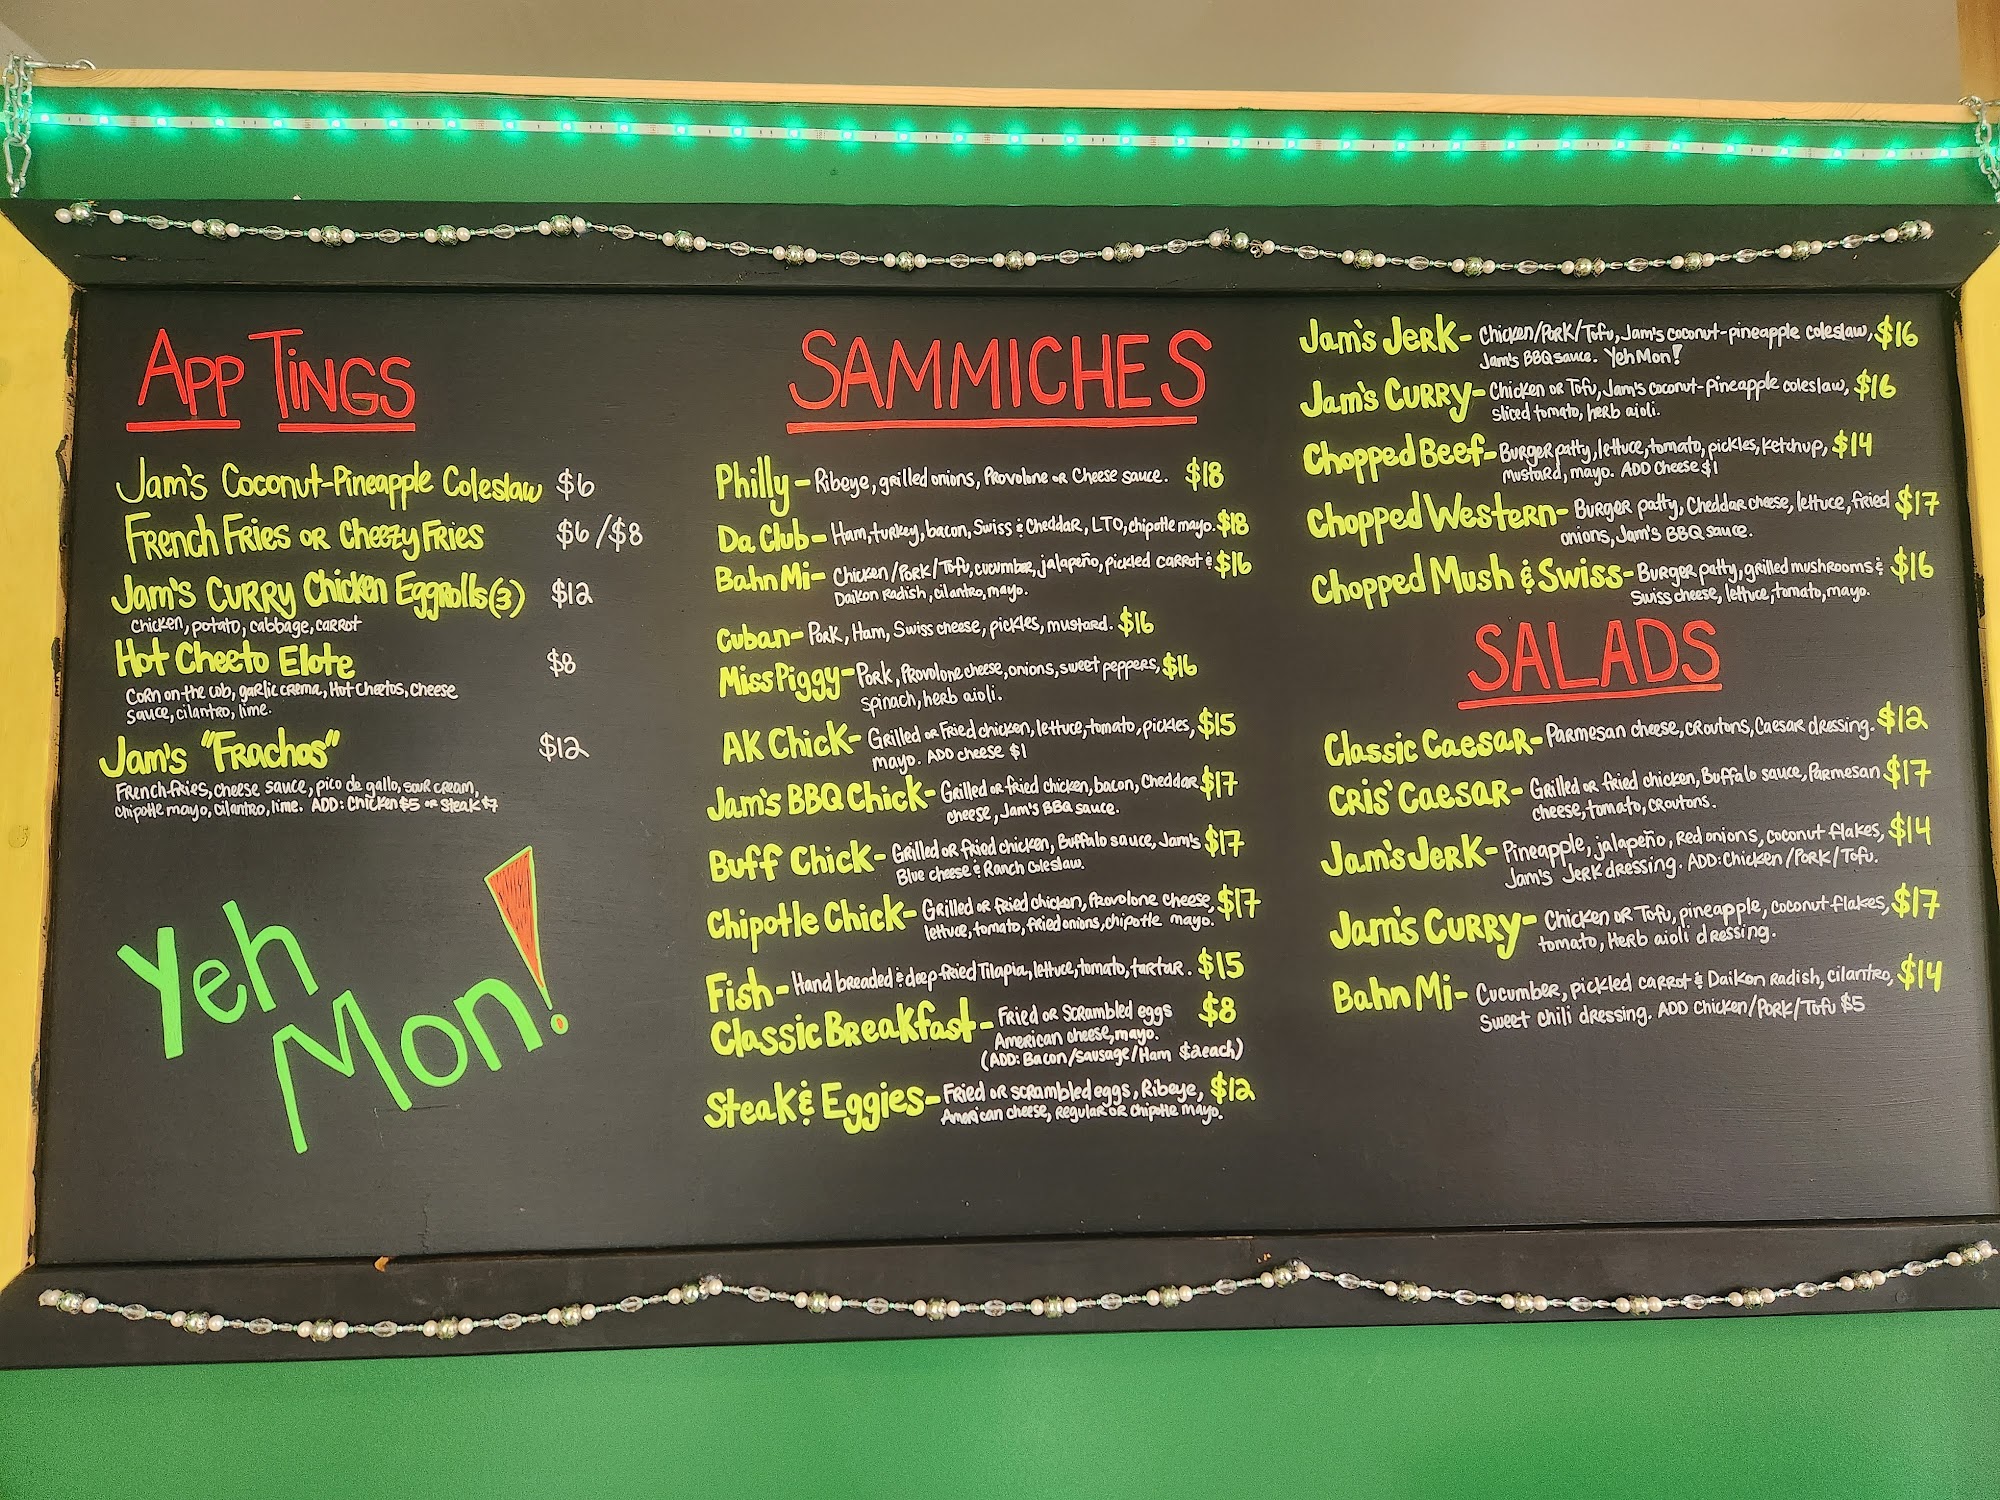 App Tings
Jam's Coconut-Pineapple Coleslaw $6
French Fries or Cheezy Fries $6/$8
Jam's Curry Chicken Eggrolls (3) $12
Chicken, potato, cabbage, carrot
Hot Cheeto Elote $8
Corn on the cob, garlic crema, Hot Cheetos, cheese
sauce, cilantro, lime.
Jam's "Frachos" $12
French fries, cheese sauce, pico de gallo, sour cream,
chipotle mayo, cilantro, lime. ADD: Chicken $5 or Steak $7
Yeh
Mon!
SAMMICHES
Philly - Ribeye, grilled onions, Provolone or Cheese sauce. $18
Da Club - Ham, turkey, bacon, Swiss & Cheddar, LTO, chipotle mayo. $18
Bahn Mi - Chicken/Pork/Tofu, cucumber, jalapeño, pickled carrot & $16
Daikon radish, cilantro, mayo.
Cuban - Pork, Ham, Swiss cheese, pickles, mustard. $16
Miss Piggy - Pork, Provolone cheese, onions, sweet peppers, $16
spinach, herb aioli.
AK Chick - Grilled or Fried chicken, lettuce, tomato, pickles, $15
mayo. ADD cheese $1
Jam's BBQ Chick - Grilled or fried chicken, bacon, Cheddar $17
cheese, Jam's BBQ sauce.
Buff Chick - Grilled or fried chicken, Buffalo sauce, Jam's $17
Blue cheese & Ranch Coleslaw.
Chipotle Chick - Grilled or fried chicken, Provolone cheese, $17
lettuce, tomato, fried onions, chipotle mayo.
Fish - Hand breaded & deep-fried Tilapia, lettuce, tomato, tartar. $15
Classic Breakfast - Fried or Scrambled eggs $8
American cheese, mayo.
(ADD: Bacon/Sausage/Ham $2 each)
Steak & Eggies - Fried or scrambled eggs, Ribeye, $12
American cheese, regular or chipotle mayo.
Jam's Jerk - Chicken/Pork/Tofu, Jam's coconut-pineapple coleslaw, $16
Jam's BBQ sauce. Yeh Mon!
Jam's Curry - Chicken or Tofu, Jam's coconut-pineapple coleslaw, $16
sliced tomato, herb aioli.
Chopped Beef - Burger patty, lettuce, tomato, pickles, ketchup, $14
mustard, mayo. ADD Cheese $1
Chopped Western - Burger patty, Cheddar cheese, lettuce, fried $17
onions, Jam's BBQ sauce.
Chopped Mush & Swiss - Burger patty, grilled mushrooms & $16
Swiss cheese, lettuce, tomato, mayo.
SALADS
Classic Caesar - Parmesan cheese, croutons, Caesar dressing. $12
Cris' Caesar - Grilled or fried chicken, Buffalo sauce, Parmesan $17
cheese, tomato, croutons.
Jam's Jerk - Pineapple, jalapeño, Red onions, coconut flakes, $14
Jam's Jerk dressing. ADD: Chicken/Pork/Tofu.
Jam's Curry - Chicken or Tofu, pineapple, coconut flakes, $17
tomato, Herb aioli dressing.
Bahn Mi - Cucumber, pickled carrot & Daikon Radish, cilantro, $14
Sweet chili dressing. ADD Chicken/Pork/Tofu $5